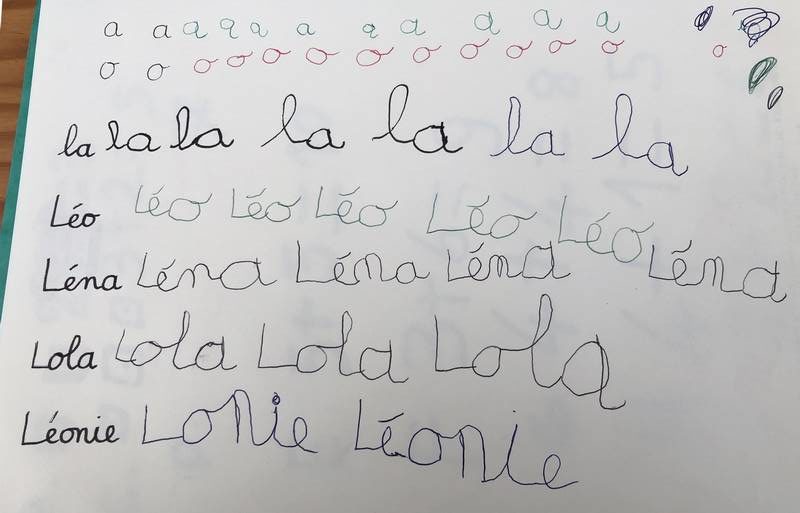 a a a a a a a a a a a
o o o o o o o o o o o o o
la la la la la la la
Léo Léo Léo Léo Léo Léo
Léna Léna Léna Léna Léna
Lola Lola Lola Lola
Léonie Lonie Léonie